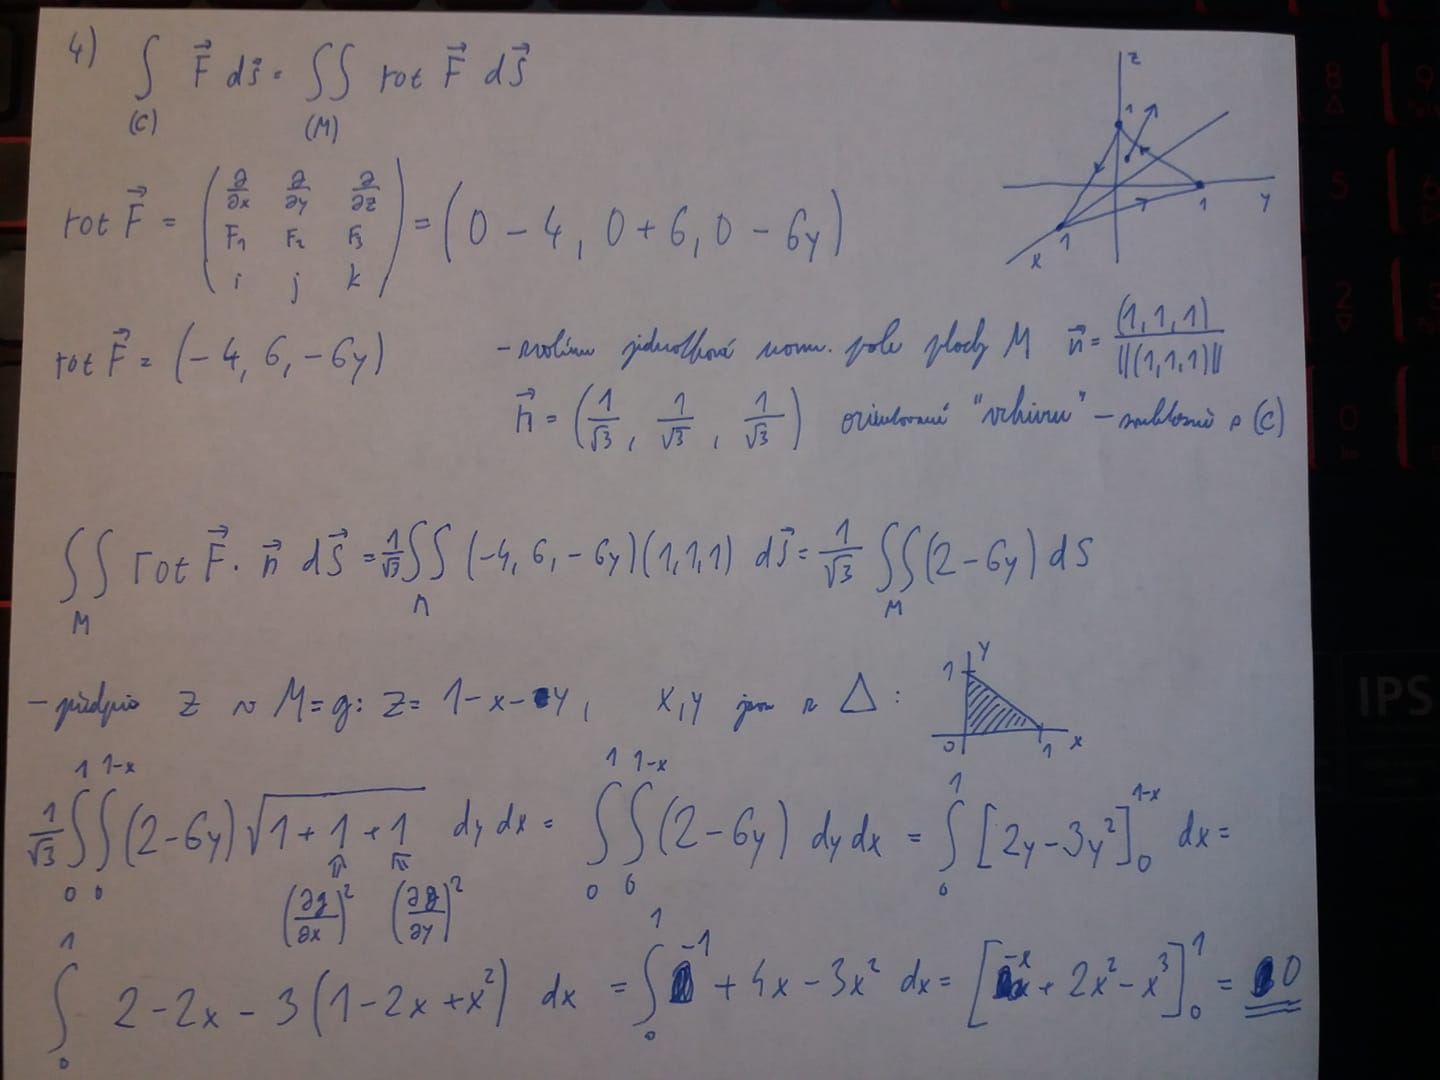 4) ∫_(C) F⃗ ds⃗ = ∬_(M) rot F⃗ dS⃗
rot F⃗ = ( ∂/∂x ∂/∂y ∂/∂z ; F₁ F₂ F₃ ; i j k ) = (0 − 4, 0 + 6, 0 − 6y)
z 1 1 y 1 x
rot F⃗ = (−4, 6, −6y)
– zvolíme jednotkové norm. pole plochy M n⃗ = (1,1,1) / ||(1,1,1)||
n⃗ = (1/√3, 1/√3, 1/√3) orientované "vzhůru" – souhlasně s (C)
∬_M rot F⃗ · n⃗ dS⃗ = 1/√3 ∬_M (−4, 6, −6y)(1,1,1) dS⃗ = 1/√3 ∬_M (2 − 6y) dS
– předpis z v M = g: z = 1 − x − y, x, y jsou v △: y 1 0 1 x
1/√3 ∫₀¹ ∫₀^(1−x) (2 − 6y) √(1 + 1 + 1) dy dx = ∫₀¹ ∫₀^(1−x) (2 − 6y) dy dx = ∫₀¹ [2y − 3y²]₀^(1−x) dx =
(∂g/∂x)² (∂g/∂y)²
∫₀¹ 2 − 2x − 3(1 − 2x + x²) dx = ∫₀¹ −1 + 4x − 3x² dx = [−x + 2x² − x³]₀¹ = 0
8
9
5
2
0
IPS